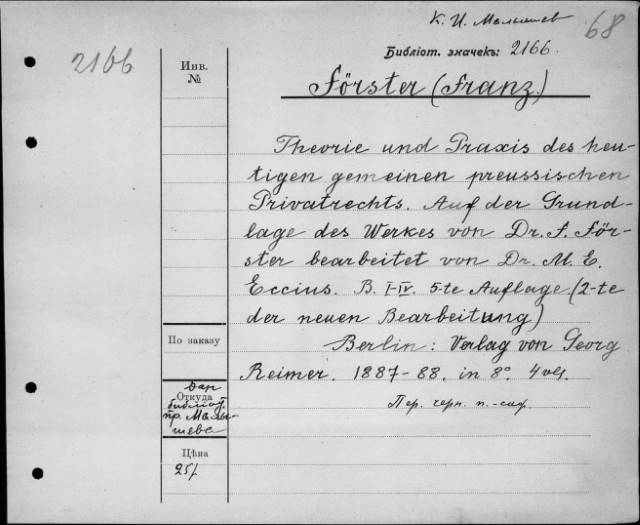 К. И. Малышев
68
2166
Библіот. значекъ: 2166.
Инв.
№
Förster (Franz.)
Theorie und Praxis des heu-
tigen gemeinen preussischen
Privatrechts. Auf der Grund-
lage des Werkes von Dr. F. För-
ster bearbeitet von Dr. M. E.
Eccius. B. I-IV. 5-te Auflage (2-te
der neuen Bearbeitung)
По заказу
Berlin: Verlag von Georg
Reimer. 1887-88. in 8° 4 vol.
Дар
Откуда
библіот.
пр. Малы-
шева
Пер. черн. п.-саф.
Цѣна
25р.